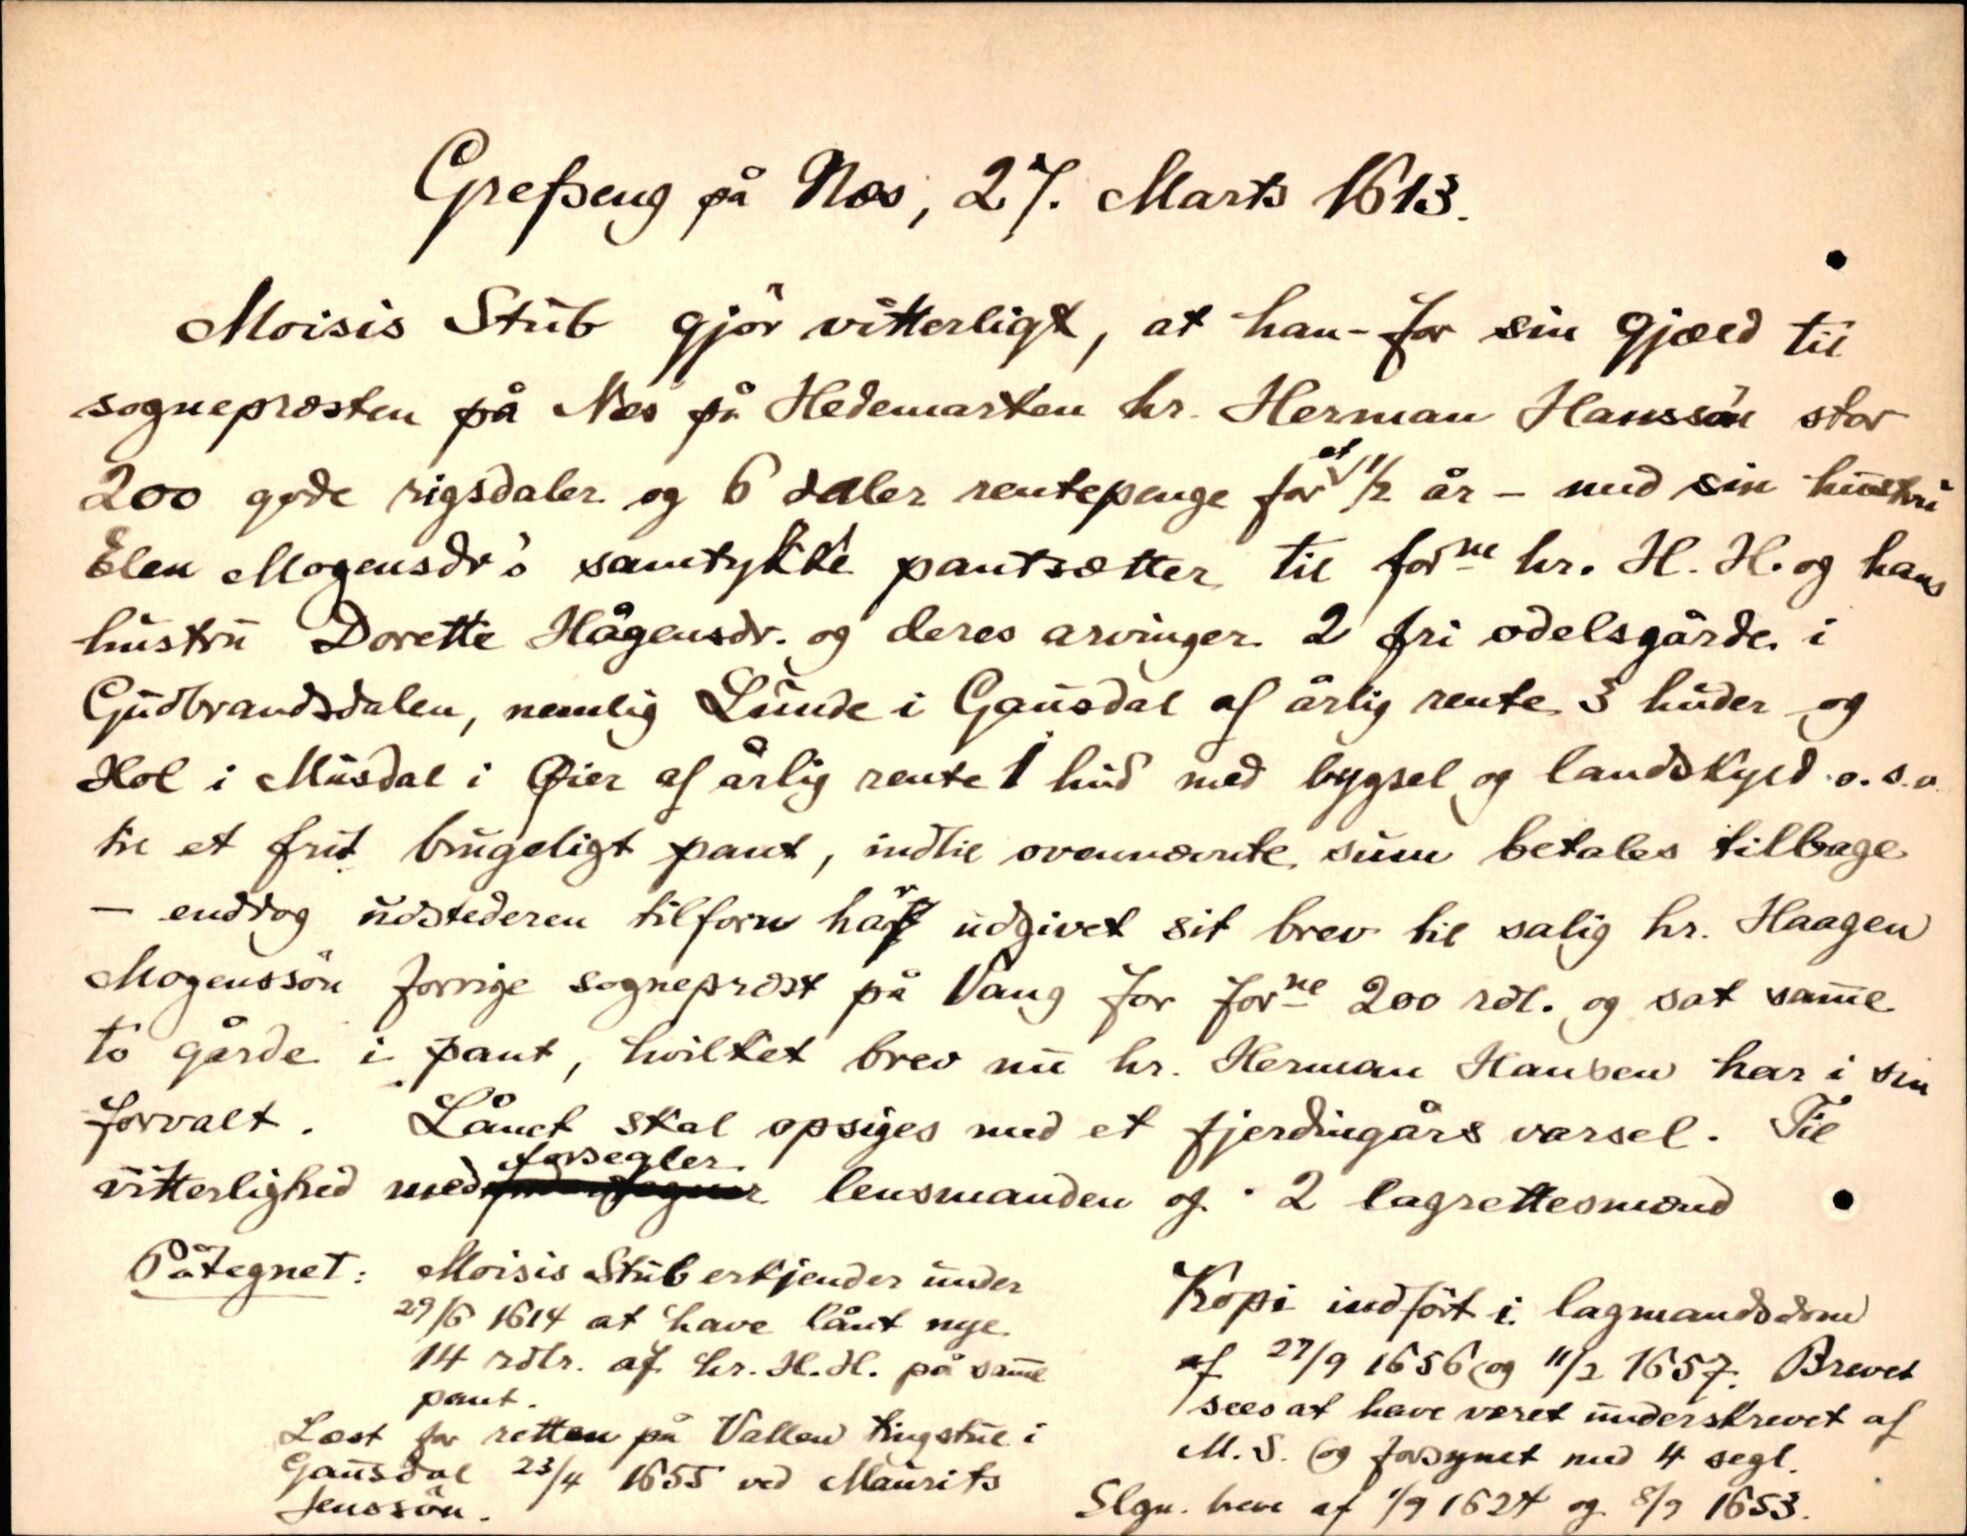 Grefseng på Næs, 27. Marts 1613.
Moisis Stub gjör vitterligt, at han - for sin gjæld til
sognepræsten på Næs på Hedemarken hr. Herman Hanssön stor
200 gode rigsdaler og 6 daler rentepenge for et 1/2 år - med sin hustru
Elen Mogensdr's samtykke pantsætter til forne hr. H. H. og hans
hustru Dorette Hågensdr. og deres arvinger 2 fri odelsgårde i
Gudbrandsdalen, nemlig Lunde i Gausdal af årlig rente 3 huder og
Hol i Musdal i Øier af årlig rente 1 hud med bygsel og landskyld o.s.v.
til et frit brugeligt pant, indtil ovennævnte sum betales tilbage
- enddog udstederen tilforn har udgivet sit brev til salig hr. Haagen
Mogenssön forrige sognepræst på Vang for forne 200 rdl. og sat samme
to gårde i pant, hvilket brev nu hr. Herman Hansen har i sin
forvalt. Lånet skal opsiges med et fjerdingårs varsel. Til
vitterlighed medforsegler lensmanden og 2 lagrettesmænd
Påtegnet: Moisis Stub erkjender under
29/6 1614 at have lånt nye
14 rdlr. af hr. H. H. på samme
pant.
Læst for retten på Vallen tingstue i
Gausdal 23/4 1655 ved Maurits
Jenssön.
Kopi indfört i lagmandsdom
af 27/9 1656 og 11/2 1657. Brevet
sees at have været underskrevet af
M. S. og forsynet med 4 segl.
Slgn. breve af 1/9 1624 og 8/9 1653.